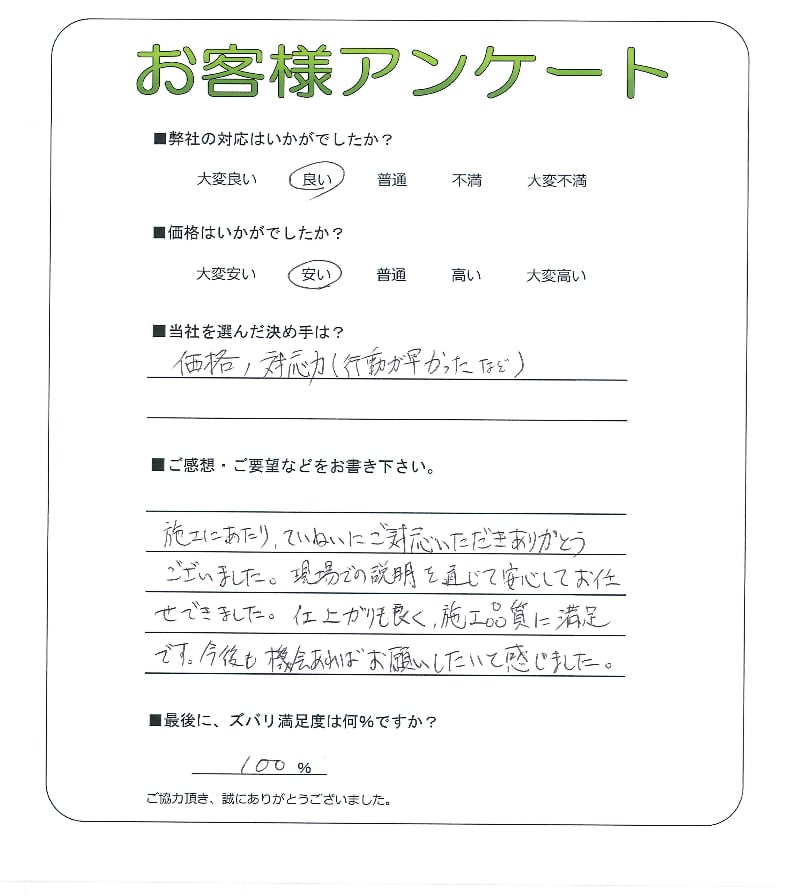 お客様アンケート
■弊社の対応はいかがでしたか？
大変良い 良い 普通 不満 大変不満
■価格はいかがでしたか？
大変安い 安い 普通 高い 大変高い
■当社を選んだ決め手は？
価格、対応力(行動が早かったなど)
■ご感想・ご要望などをお書き下さい。
施工にあたり、ていねいにご対応いただきありがとう
ございました。現場での説明を通じて安心してお任
せできました。仕上がりも良く、施工品質に満足
です。今後も機会あればお願いしたいと感じました。
■最後に、ズバリ満足度は何％ですか？
100 %
ご協力頂き、誠にありがとうございました。